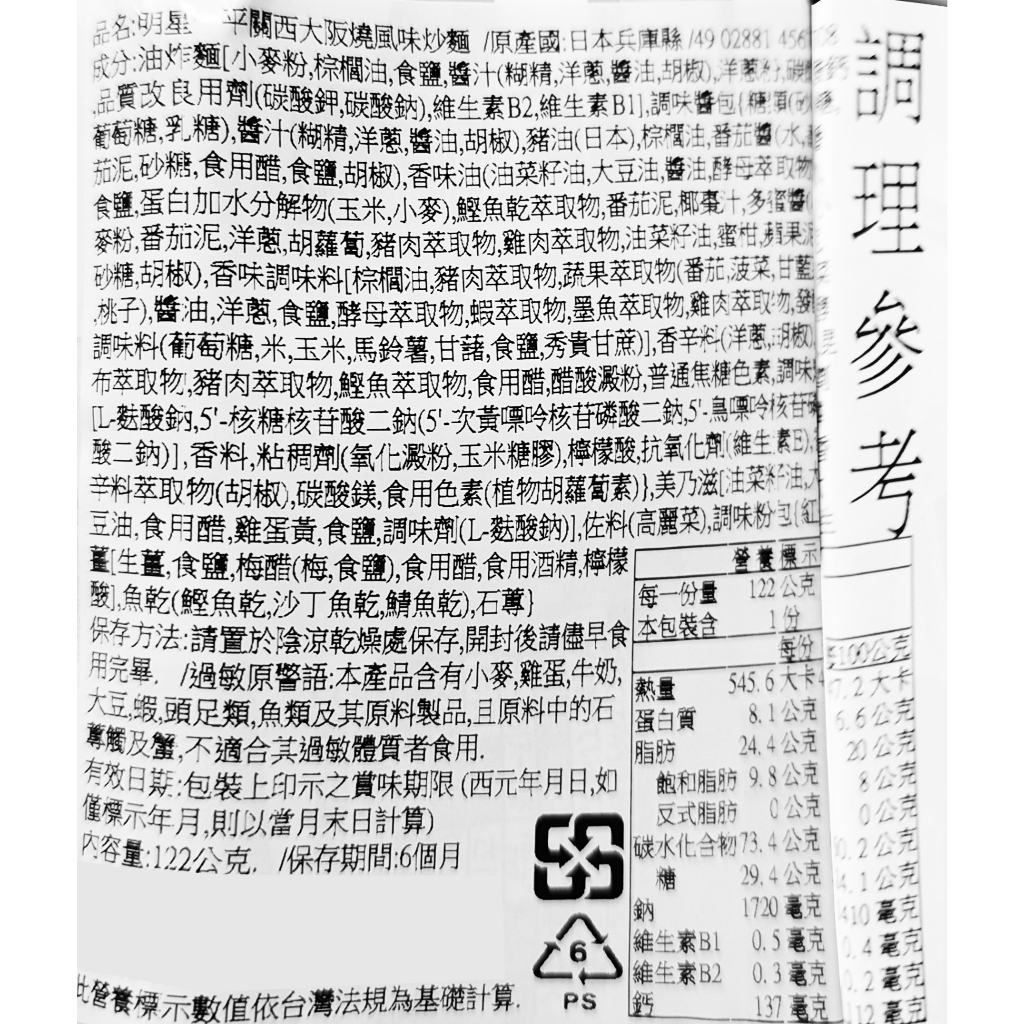 品名:明星 平關西大阪燒風味炒麵 /原產國:日本兵庫縣 /49 02881 456
成分:油炸麵[小麥粉,棕櫚油,食鹽,醬汁(糊精,洋蔥,醬油,胡椒),洋蔥粉,碳酸鈣
,品質改良用劑(碳酸鉀,碳酸鈉),維生素B2,維生素B1],調味醬包{糖類(砂糖,
葡萄糖,乳糖),醬汁(糊精,洋蔥,醬油,胡椒),豬油(日本),棕櫚油,番茄醬(水,蕃
茄泥,砂糖,食用醋,食鹽,胡椒),香味油(油菜籽油,大豆油,醬油,酵母萃取物
食鹽,蛋白加水分解物(玉米,小麥),鰹魚乾萃取物,番茄泥,椰棗汁,多蜜醬(
麥粉,番茄泥,洋蔥,胡蘿蔔,豬肉萃取物,雞肉萃取物,油菜籽油,蜜柑,蘋果泥
砂糖,胡椒),香味調味料[棕櫚油,豬肉萃取物,蔬果萃取物(番茄,菠菜,甘藍
,桃子),醬油,洋蔥,食鹽,酵母萃取物,蝦萃取物,墨魚萃取物,雞肉萃取物,發酵
調味料(葡萄糖,米,玉米,馬鈴薯,甘藷,食鹽,秀貴甘蔗)],香辛料(洋蔥,胡椒),
布萃取物,豬肉萃取物,鰹魚萃取物,食用醋,醋酸澱粉,普通焦糖色素,調味
[L-麩酸鈉,5'-核糖核苷酸二鈉(5'-次黃嘌呤核苷磷酸二鈉,5'-鳥嘌呤核苷磷
酸二鈉)],香料,粘稠劑(氧化澱粉,玉米糖膠),檸檬酸,抗氧化劑(維生素E),
辛料萃取物(胡椒),碳酸鎂,食用色素(植物胡蘿蔔素)},美乃滋[油菜籽油,大
豆油,食用醋,雞蛋黃,食鹽,調味劑(L-麩酸鈉)],佐料(高麗菜),調味粉包{紅
薑[生薑,食鹽,梅醋(梅,食鹽),食用醋,食用酒精,檸檬
酸],魚乾(鰹魚乾,沙丁魚乾,鯖魚乾),石蓴}
保存方法:請置於陰涼乾燥處保存,開封後請儘早食
用完畢. /過敏原警語:本產品含有小麥,雞蛋,牛奶,
大豆,蝦,頭足類,魚類及其原料製品,且原料中的石
蓴觸及蟹,不適合其過敏體質者食用.
有效日期:包裝上印示之賞味期限(西元年月日,如
僅標示年月,則以當月末日計算)
內容量:122公克. /保存期間:6個月
此營養標示數值依台灣法規為基礎計算.
6
PS
營養標示
每一份量 122公克
本包裝含 1份
每份 100公克
熱量 545.6大卡 7.2大卡
蛋白質 8.1公克 6.6公克
脂肪 24.4公克 20公克
飽和脂肪 9.8公克 8公克
反式脂肪 0公克 0公克
碳水化合物73.4公克 0.2公克
糖 29.4公克 4.1公克
鈉 1720毫克 410毫克
維生素B1 0.5毫克 0.4毫克
維生素B2 0.3毫克 0.2毫克
鈣 137毫克 112毫克
調理參考